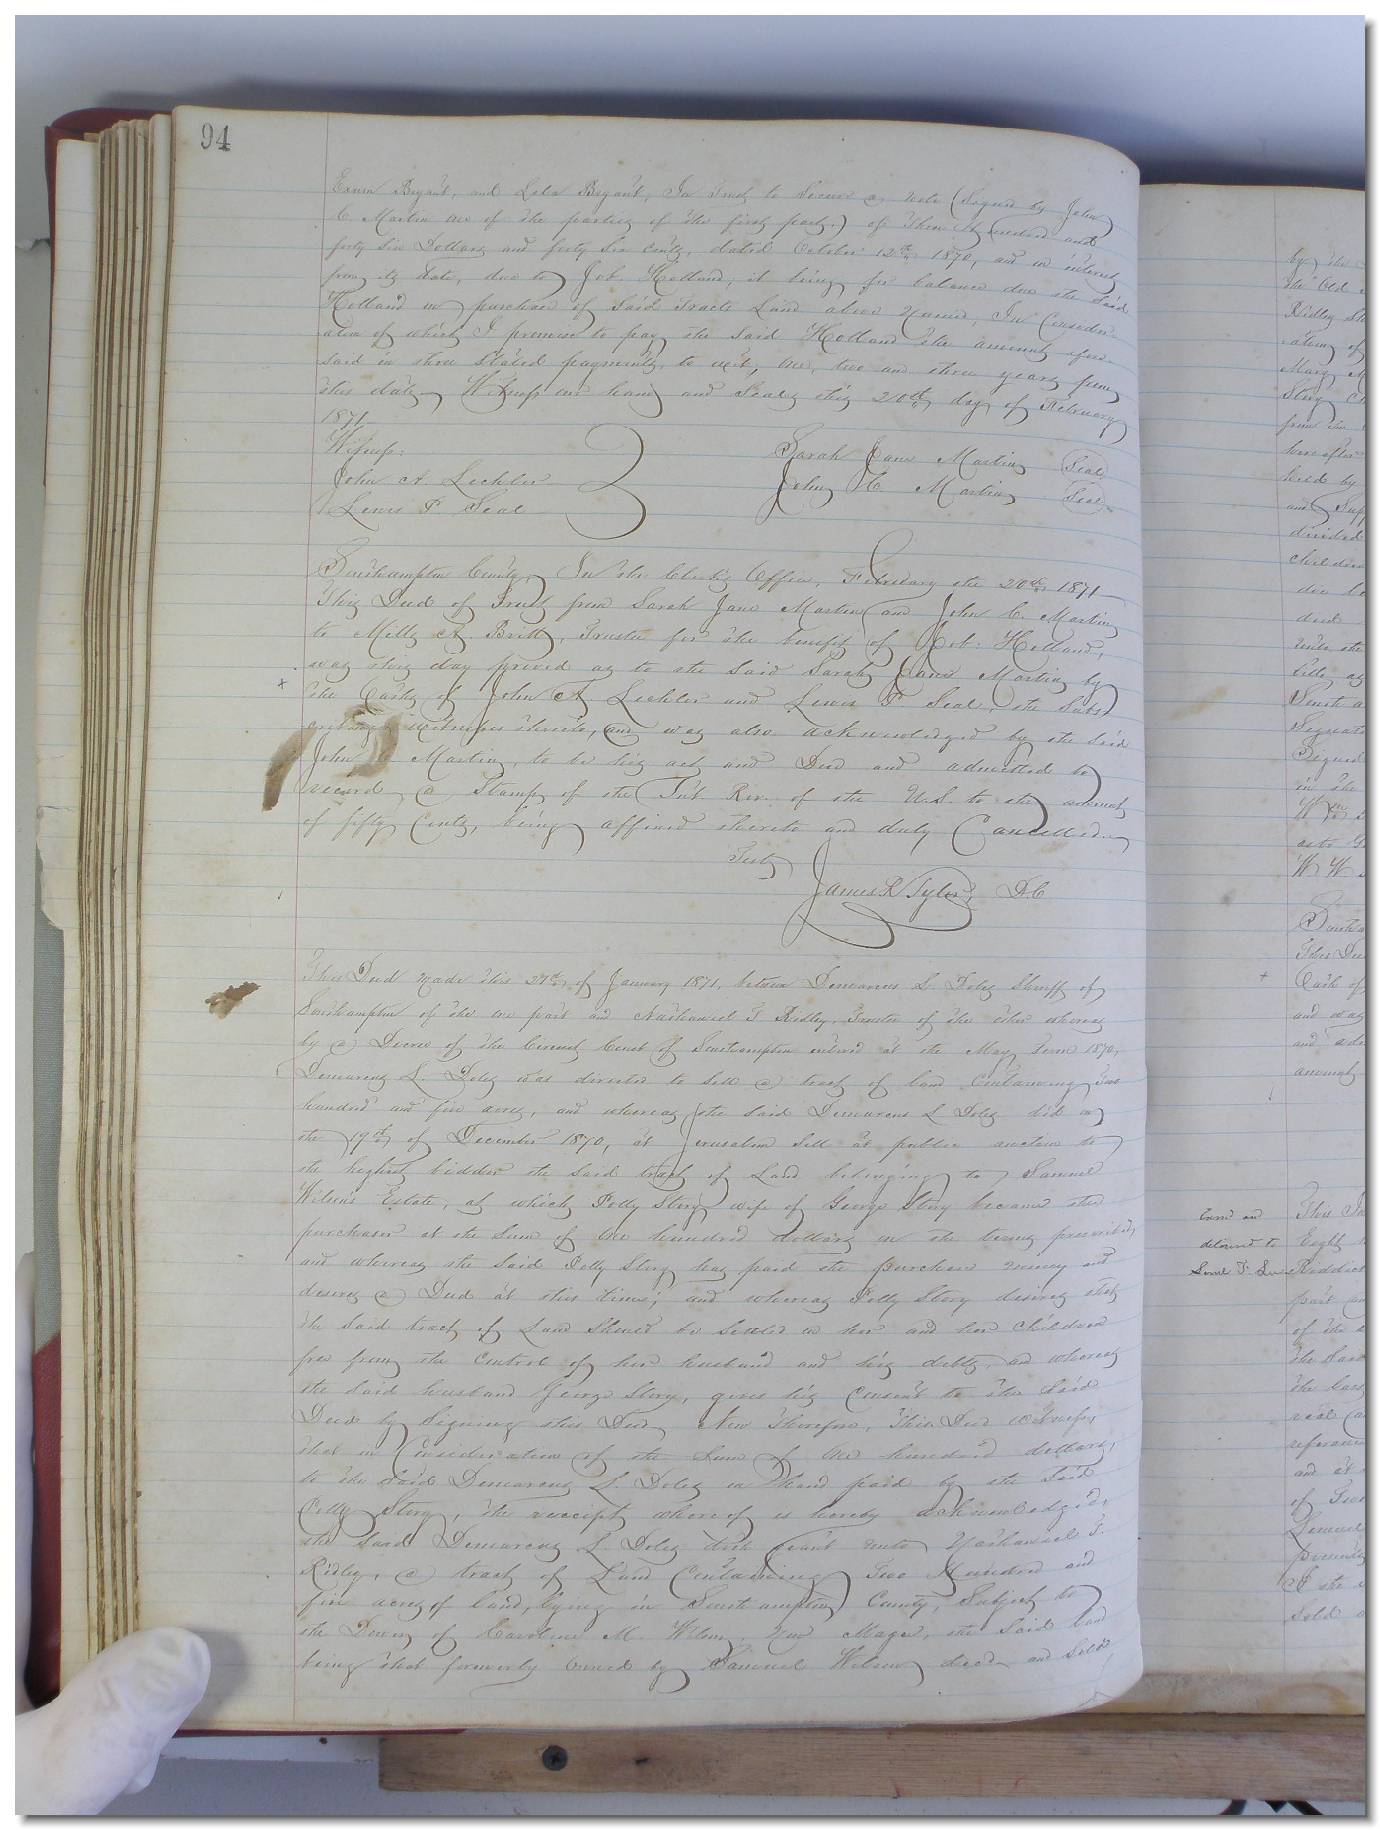 94
Exum Bryant, and Lola Bryant, In Trust to Secure a note (Signed by John
C. Martin one of the parties of the first part.) of Three Hundred and
forty Six Dollars and forty Six cents, dated October 12th 1870, and on interest
from its date, due to Job. Holland; it being for balance due the Said
Holland on purchase of Said Tracts Land above Named, In Consider-
ation of which I promise to pay the Said Holland the amount afore-
said in three Stated payments, to wit, One, two and three years from
this date, Witness our hands and Seals this 20th day of February
1871
Witness:
Sarah Jane Martin Seal
John A Lechler
John C. Martin Seal
Lewis F Seal
Southampton County, In the Clerk's Office, February the 20th 1871
This Deed of Trust from Sarah Jane Martin and John C. Martin
to Mills A. Britt, Trustee for the benefit of Job: Holland,
was this day proved as to the Said Sarah Jane Martin by
the Oaths of John A Lechler and Lewis F Seal, the Subs-
cribing witnesses thereto, and was also acknowledged by the Said
John C. Martin, to be his act and Deed and admitted to
record, a Stamp of the Int. Rev. of the U.S. to the amount
of fifty Cents, being affixed thereto and duly Cancelled.
Teste
James R Tyler, D.C
This Deed made this 27th of January 1871, between Demarcus L. Doles Sheriff of
Southampton of the one part and Nathaniel T Ridley, Trustee of the other whereas
by a Decree of the Circuit Court of Southampton entered at the May Term 1870,
Demarcus L. Doles was directed to Sell a tract of land Containing Two
hundred and five acres, and whereas the said Demarcus L Doles did on
the 19th of December 1870, at Jerusalem Sell at public auction to
the highest bidder the Said tract of Land belonging to Samuel
Wilson's Estate, at which Polly Story wife of George Story became the
purchaser at the Sum of One hundred dollars on the terms prescribed,
and whereas the Said Polly Story has paid the purchase money and
desires a Deed at this time; and whereas Polly Story desires that
the Said tract of Land Should be Settled on her and her children
free from the Control of her husband and his debts, and whereas
the said husband George Story, gives his Consent to the Said
Deed by Signing this Deed, Now Therefore, This Deed witnesses,
that in Consideration of the Sum of One hundred dollars,
to the Said Demarcus L. Doles in hand paid by the Said
Polly Story, the receipt whereof is hereby acknowledged,
the Said Demarcus L. Doles doth Grant unto Nathaniel T.
Ridley, a tract of Land Containing Two Hundred and
five acres of land, lying in Southampton County, Subject to
the Dower of Caroline M. Wilson, now Magee, the Said land
being that formerly Owned by Samuel Wilson, decd, and Sold
by the
the Old
Ridley
Mary
Story
from the
hereafter
held by
and Sup
divided
children
deed
Signed
in the
and
amount
delivered to
This In
Eight
part
of the
the Said
and at
of
Sold